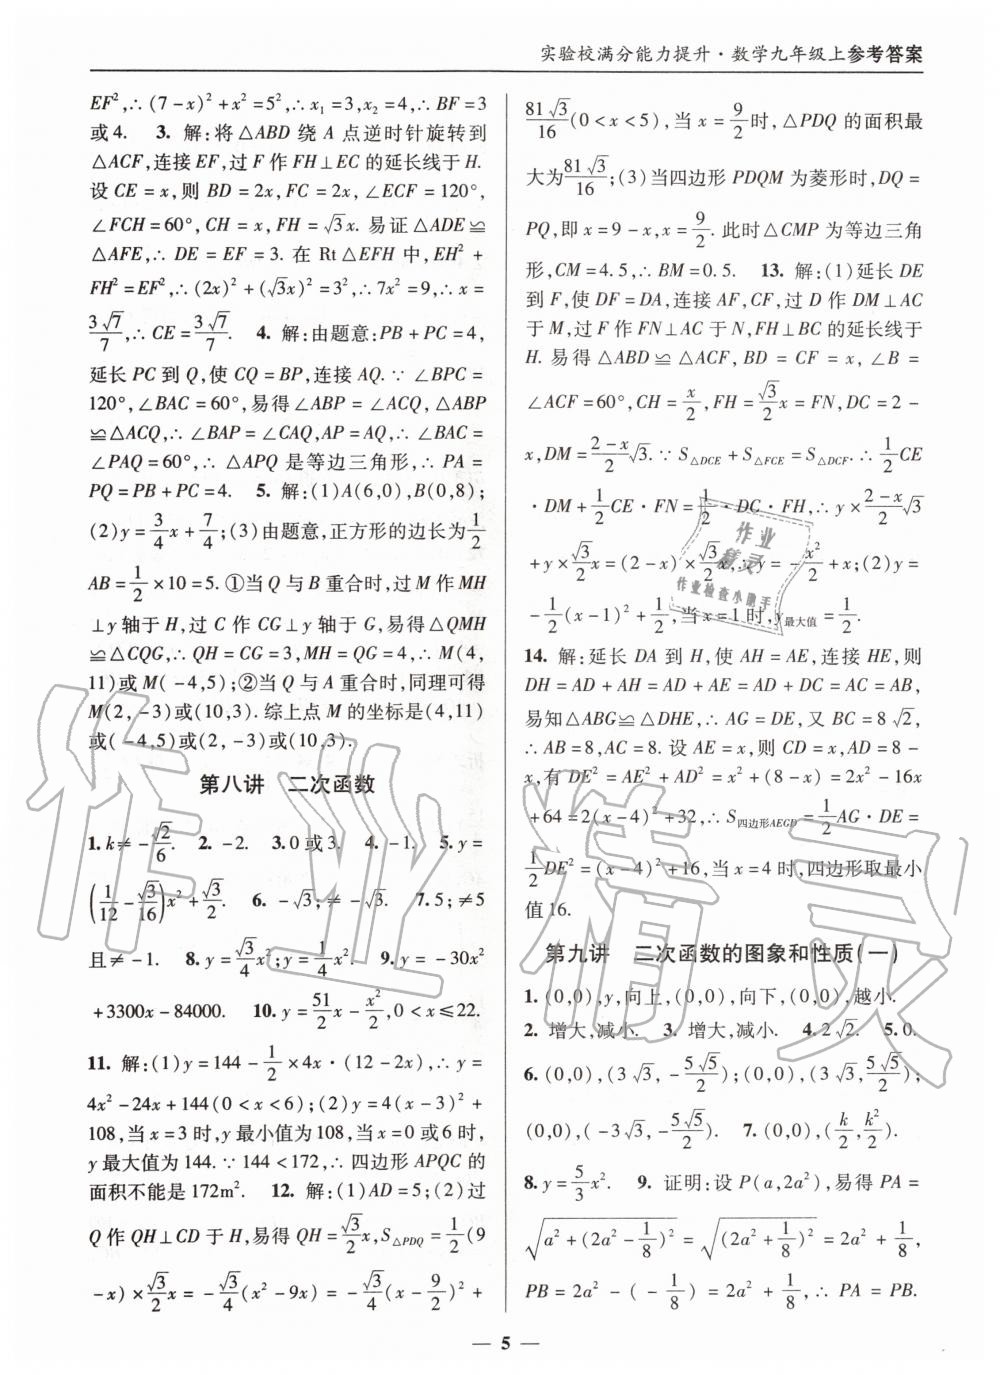 实验校满分能力提升·数学九年级上参考答案
EF²,∴(7-x)²+x²=5²,∴x₁=3,x₂=4,∴BF=3
或4. 3. 解:将△ABD绕A点逆时针旋转到
△ACF,连接EF,过F作FH⊥EC的延长线于H.
设CE=x,则BD=2x,FC=2x,∠ECF=120°,
∠FCH=60°,CH=x,FH=√3x. 易证△ADE≌
△AFE,∴DE=EF=3. 在Rt△EFH中,EH²+
FH²=EF²,∴(2x)²+(√3x)²=3²,∴7x²=9,∴x=
3√7/7,∴CE=3√7/7. 4. 解:由题意:PB+PC=4,
延长PC到Q,使CQ=BP,连接AQ.∵∠BPC=
120°,∠BAC=60°,易得∠ABP=∠ACQ,△ABP
≌△ACQ,∴∠BAP=∠CAQ,AP=AQ,∴∠BAC=
∠PAQ=60°,∴△APQ是等边三角形,∴PA=
PQ=PB+PC=4. 5. 解:(1)A(6,0),B(0,8);
(2)y=3/4x+7/4;(3)由题意,正方形的边长为1/2
AB=1/2×10=5. ①当Q与B重合时,过M作MH
⊥y轴于H,过C作CG⊥y轴于G,易得△QMH
≌△CQG,∴QH=CG=3,MH=QG=4,∴M(4,
11)或M(-4,5);②当Q与A重合时,同理可得
M(2,-3)或(10,3). 综上点M的坐标是(4,11)
或(-4,5)或(2,-3)或(10,3).
第八讲 二次函数
1. k≠-√2/6. 2. -2. 3. 0或3. 4. -1. 5. y=
(1/12-√3/16)x²+√3/2. 6. -√3;≠-√3. 7. 5;≠5
且≠-1. 8. y=√3/4x²;y=1/4x². 9. y=-30x²
+3300x-84000. 10. y=51/2x-x²/2,0<x≤22.
11. 解:(1)y=144-1/2×4x·(12-2x),∴y=
4x²-24x+144(0<x<6);(2)y=4(x-3)²+
108,当x=3时,y最小值为108,当x=0或6时,
y最大值为144.∵144<172,∴四边形APQC的
面积不能是172m². 12. 解:(1)AD=5;(2)过
Q作QH⊥CD于H,易得QH=√3/2x,S△PDQ=1/2(9
-x)×√3/2x=-√3/4(x²-9x)=-√3/4(x-9/2)²+
81√3/16(0<x<5),当x=9/2时,△PDQ的面积最
大为81√3/16;(3)当四边形PDQM为菱形时,DQ=
PQ,即x=9-x,x=9/2. 此时△CMP为等边三角
形,CM=4.5,∴BM=0.5. 13. 解:(1)延长DE
到F,使DF=DA,连接AF,CF,过D作DM⊥AC
于M,过F作FN⊥AC于N,FH⊥BC的延长线于
H. 易得△ABD≌△ACF,BD=CF=x,∠B=
∠ACF=60°,CH=x/2,FH=√3/2x=FN,DC=2-
x,DM=2-x/2√3.∵S△DCE+S△FCE=S△DCF.∴1/2CE
·DM+1/2CE·FN=1/2·DC·FH,∴y×2-x/2√3
+y×√3/2x=(2-x)×√3/2x,∴y=-x²/2+x;(2)y=
-1/2(x-1)²+1/2,当x=1时,y最大值=1/2.
14. 解:延长DA到H,使AH=AE,连接HE,则
DH=AD+AH=AD+AE=AD+DC=AC=AB,
易知△ABG≌△DHE,∴AG=DE,又BC=8√2,
∴AB=8,AC=8. 设AE=x,则CD=x,AD=8-
x,有DE²=AE²+AD²=x²+(8-x)²=2x²-16x
+64=2(x-4)²+32,∴S四边形AEGD=1/2AG·DE=
1/2DE²=(x-4)²+16,当x=4时,四边形取最小
值16.
第九讲 二次函数的图象和性质(一)
1. (0,0),y,向上,(0,0),向下,(0,0),越小.
2. 增大,减小. 3. 增大,减小. 4. 2√2. 5. 0.
6. (0,0),(3√3,-5√5/2);(0,0),(3√3,5√5/2);
(0,0),(-3√3,-5√5/2). 7. (0,0),(k/2,k²/2).
8. y=5/3x². 9. 证明:设P(a,2a²),易得PA=
√(a²+(2a²-1/8)²)=√((2a²+1/8)²)=2a²+1/8,
PB=2a²-(-1/8)=2a²+1/8,∴PA=PB.
— 5 —
作业精灵
作业
精灵
作业检查小助手